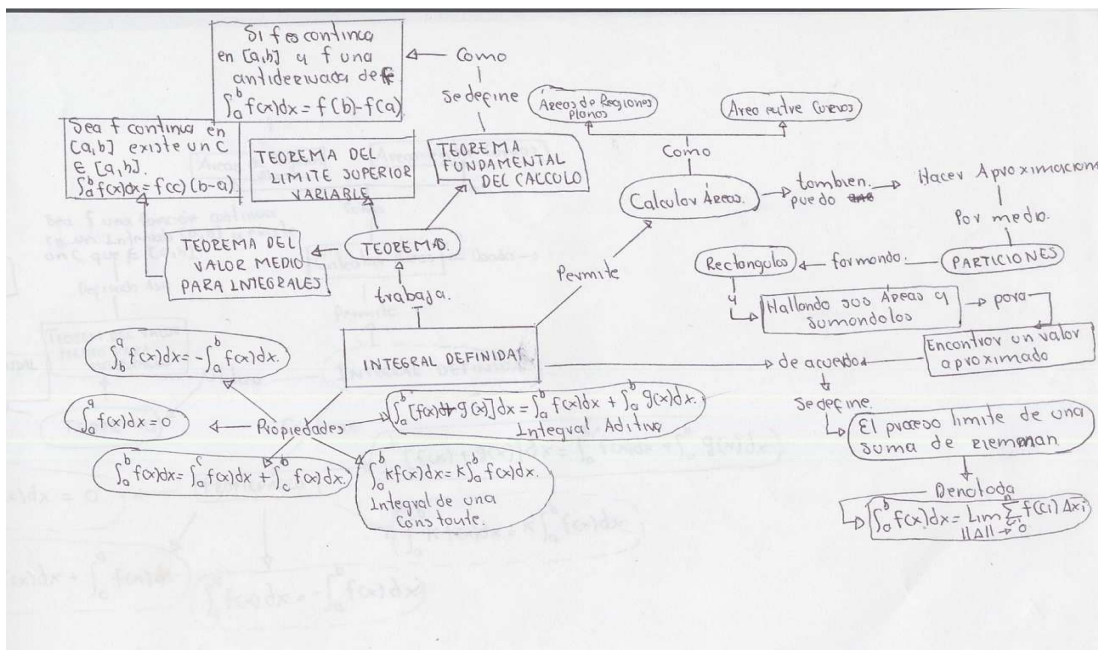 Si f es continua
en [a,b] y f una
antiderivada de f
∫_a^b f(x)dx = f(b)-f(a)
Como
Se define
Sea f continua en
[a,b] existe un C
∈ [a,b].
∫_a^b f(x)dx = f(c)(b-a)
TEOREMA DEL
LIMITE SUPERIOR
VARIABLE
TEOREMA
FUNDAMENTAL
DEL CALCULO
TEOREMA DEL
VALOR MEDIO
PARA INTEGRALES
TEOREMAS.
trabaja.
INTEGRAL DEFINIDA
Permite
Calcular Áreas.
Como
Áreas de Regiones
Planas
Area entre Curvas
tambien.
puedo
Hacer Aproximacion
Por medio.
PARTICIONES
formando.
Rectangulos
y
Hallando sus Áreas y
sumandolos
para
Encontrar un valor
aproximado
de acuerdo
Se define.
El proceso limite de una
suma de rieman
Denotada
∫_a^b f(x)dx = Lim_{||Δ||→0} Σ_i^n f(ci) Δxi
Propiedades
∫_b^a f(x)dx = -∫_a^b f(x)dx.
∫_a^a f(x)dx = 0
∫_a^b f(x)dx = ∫_a^c f(x)dx + ∫_c^b f(x)dx.
∫_a^b [f(x)+g(x)]dx = ∫_a^b f(x)dx + ∫_a^b g(x)dx.
Integral Aditiva
∫_a^b Kf(x)dx = K∫_a^b f(x)dx.
Integral de una
Constante.